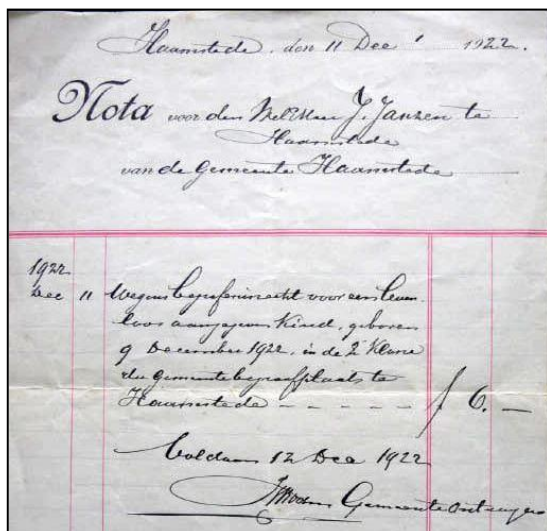 Haamstede, den 11 Dec 1922.
Nota voor den WelEdHeer J. Janzen te
Haamstede
van de Gemeente Haamstede
1922
Dec 11 Wegens begrafenisrecht voor een leven
loos aangegeven kind, geboren
9 December 1922, in de 2e klasse
der gemeentebegraafplaats te
Haamstede - - - - - f 6. -
Voldaan 12 Dec 1922
Gemeenteontvanger